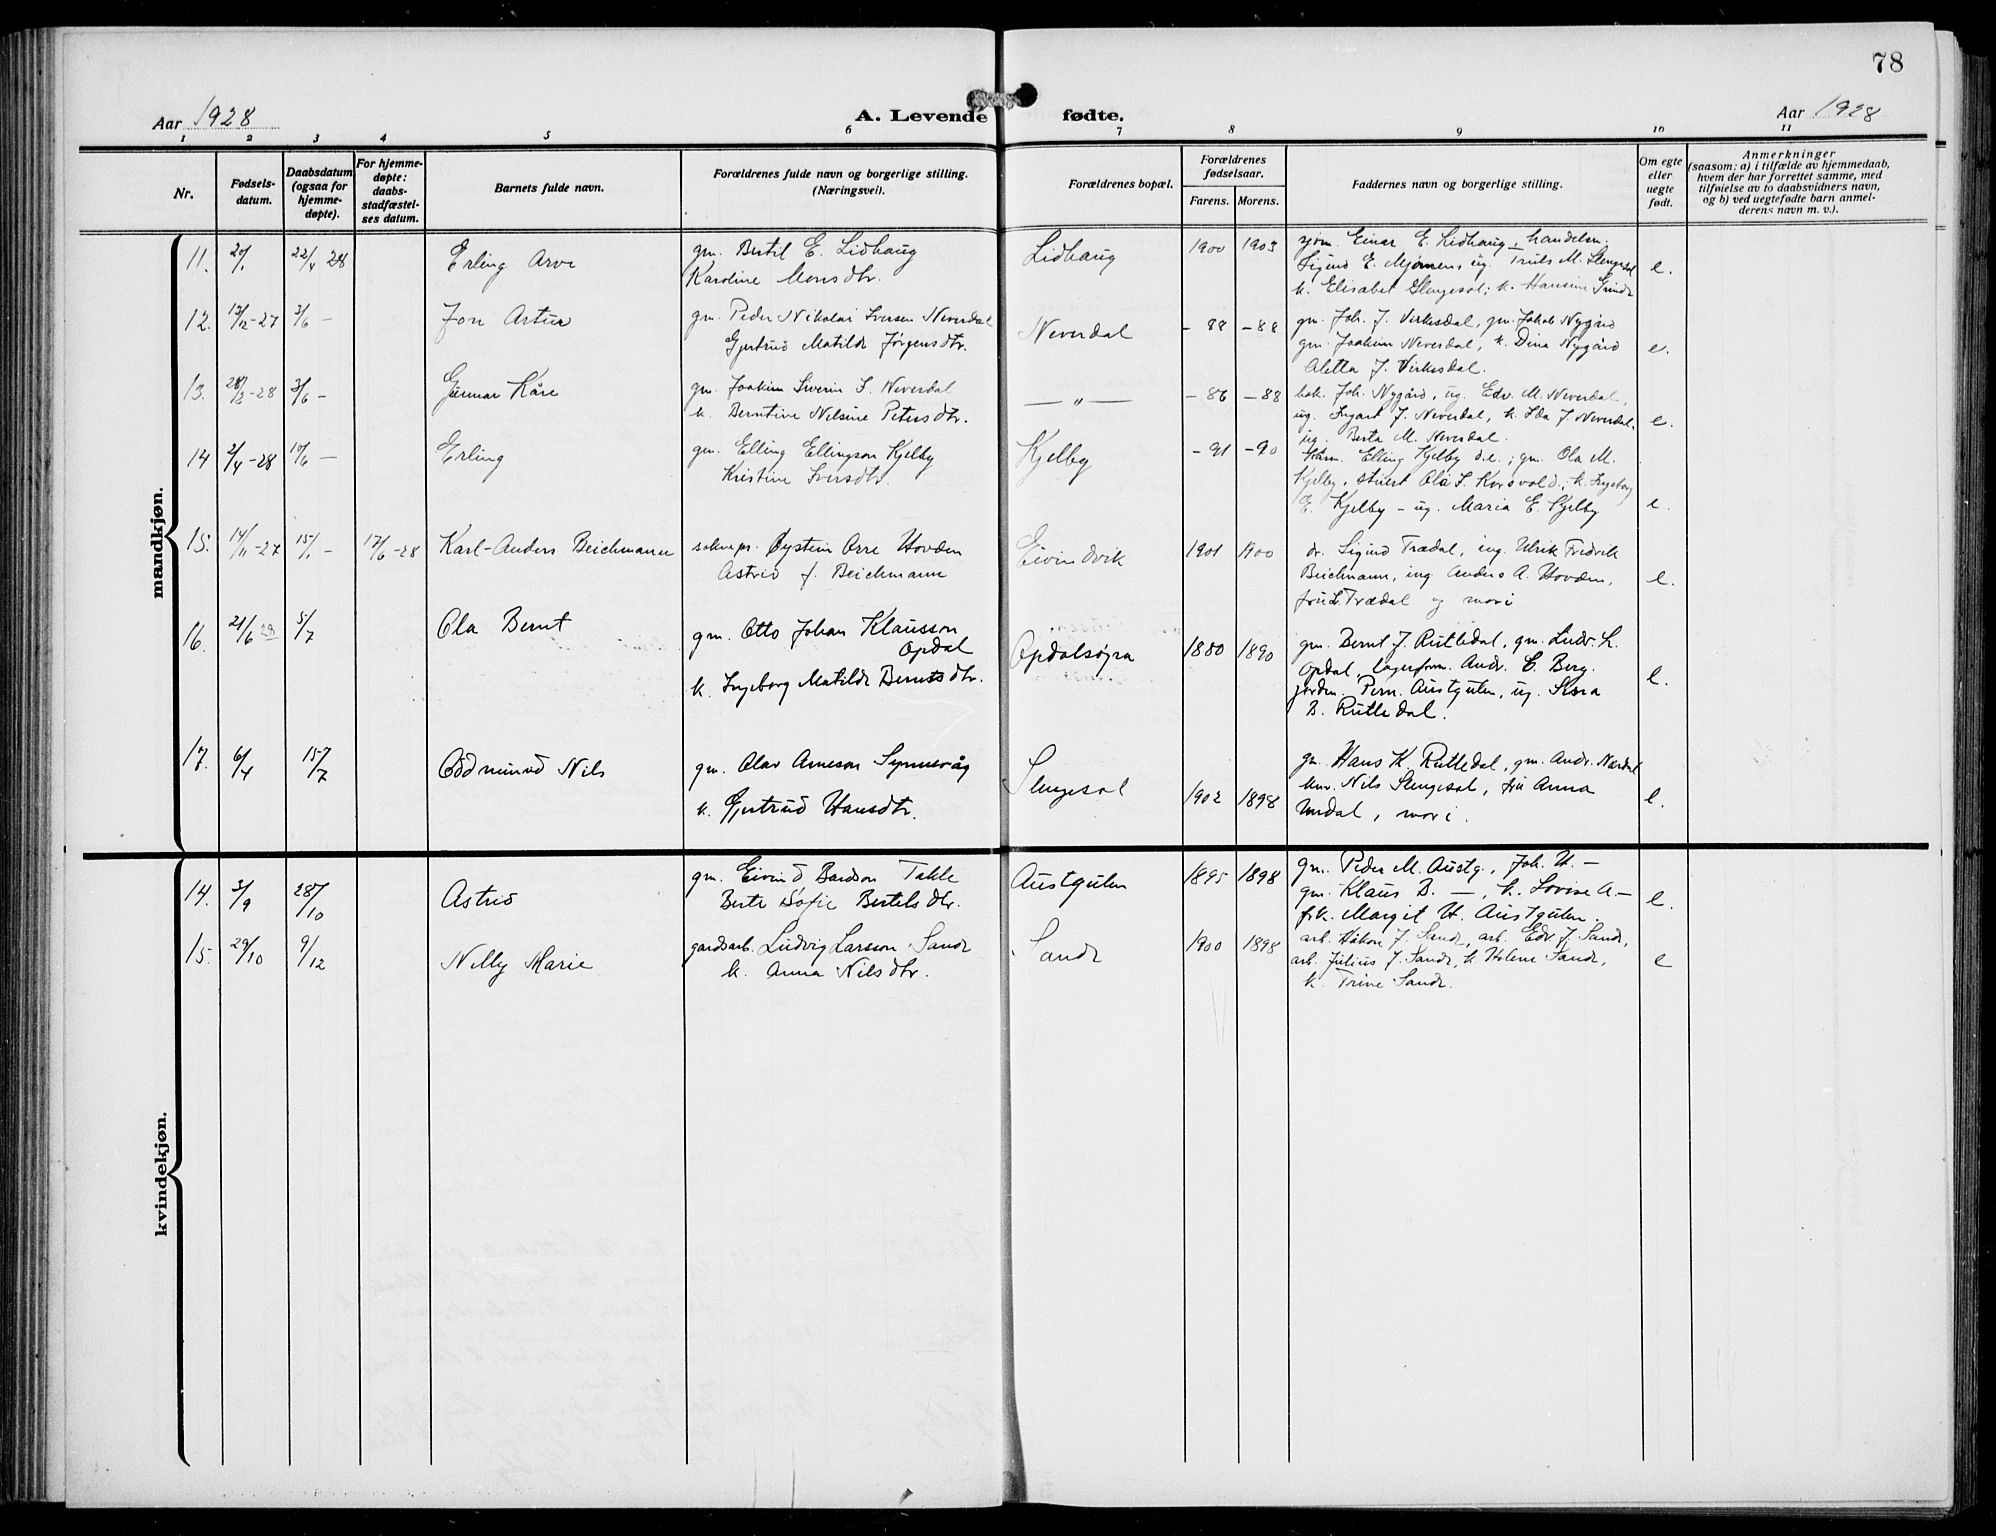 78
Aar 1928
A. Levende fødte.
Aar 1928
1 2 3 4 5 6 7 8 9 10 11
Nr.
Fødsels-
datum.
Daabsdatum
(ogsaa for
hjemme-
døpte).
For hjemme-
døpte:
daabs-
stadfæstel-
ses datum.
Barnets fulde navn.
Forældrenes fulde navn og borgerlige stilling.
(Næringsveil).
Forældrenes bopæl.
Forældrenes
fødselsaar.
Farens. Morens.
Faddernes navn og borgerlige stilling.
Om egte
eller
uegte
født.
Anmerkninger
(saasom: a) i tilfælde av hjemmedaab,
hvem der har forrettet samme, med
tilføielse av to daabsvidners navn,
og b) ved uegtefødte barn anmel-
derens navn m. v.).
mandkjøn.
11. 20/1 22/4 28 Erling Arve
gm. Bertil E. Lidhaug
Karoline Monsdtr.
Lidhaug 1900 1903
Einar E. Lidhaug, handelsm.
Sigurd E. Mjømens ug. Truls M. Slengesol
k. Elisabet Slengesol; k. Hansine Grinde
e.
12. 13/12-27 3/6 - Jon Artur
gm. Peder Nikolai Iversen Neverdal
Gjertrud Matilde Jørgensdtr.
Neverdal - 88 - 88
gm. Joh. J. Virkesdal, gm. Jakob Nygård
gm. Joakim Neverdal, k. Dina Nygård
Aletta J. Virkesdal.
e.
13. 28/3-28 3/6 - Gunnar Kåre
gm. Joakim Siverin S. Neverdal
k. Berntine Nilsine Petersdtr.
— " — - 86 - 88
Joh. Nygård, ug. Edv. M. Neverdal,
ug. Ingart J. Neverdal, k. Ida J Neverdal.
ug. Berta M. Neverdal.
e.
14 2/4-28 10/6 - Erling
gm. Elling Ellingson Kjelby
Kristine Iversdtr.
Kjelby - 91 - 90
Elling Kjelby d.e.; gm. Ola M.
Kjelby, Ola S. Korsvold, k. Ingeborg
E. Kjelby - ug. Maria E. Kjelby
e.
15. 14/11-27 15/1 - 17/6-28 Karl-Anders Beichmann
soknepr. Øystein Orre Hovden
Astrid f. Beichmann
Eivindvik 1901 1900
dr. Sigurd Trædal, ing. Ulrik Fredrik
Beichmann, ing Anders A. Hovden,
fru L. Trædal og mori
e.
16. 21/6 28 5/7 Ola Bernt
gm. Otto Johan Klausson
Opdal
k. Ingeborg Matilde Berntsdtr.
Opdalsøyra 1880 1890
gm. Bernt J. Rutledal, gm. Ludv. L.
Opdal, lagerform. Andr. C. Berg.
jordm. Pern. Austgulen, ug. Kora
B. Rutledal.
e.
17. 6/4 15/7 Oddmund Nils
gm. Olav Arneson Synnevåg
k. Gjertrud Hansdtr.
Slengesol 1902 1898
gm. Hans K. Rutledal, gm. Andr. Nærdal
Nils Slengesol, fru Anna
Undal, mori.
e.
kvindekjøn.
14. 3/9 28/10 Astrid
gm. Eivind Bardson Takle
Berte Sofie Bertelsdtr.
Austgulen 1895 1898
gm. Peder M. Austg., Joh. H. -
gm. Klaus B. -, k. Lovise A. -
frk. Margit H. Austgulen.
e.
15. 29/10 9/12 Nelly Marie
gardsarb. Ludvig Larsson Sande
k. Anna Nilsdtr.
Sande 1900 1898
arb. Håkon J. Sande, arb. Edv. J. Sande,
arb. Julius J. Sande, k. Helene Sande,
k. Trine Sande.
e